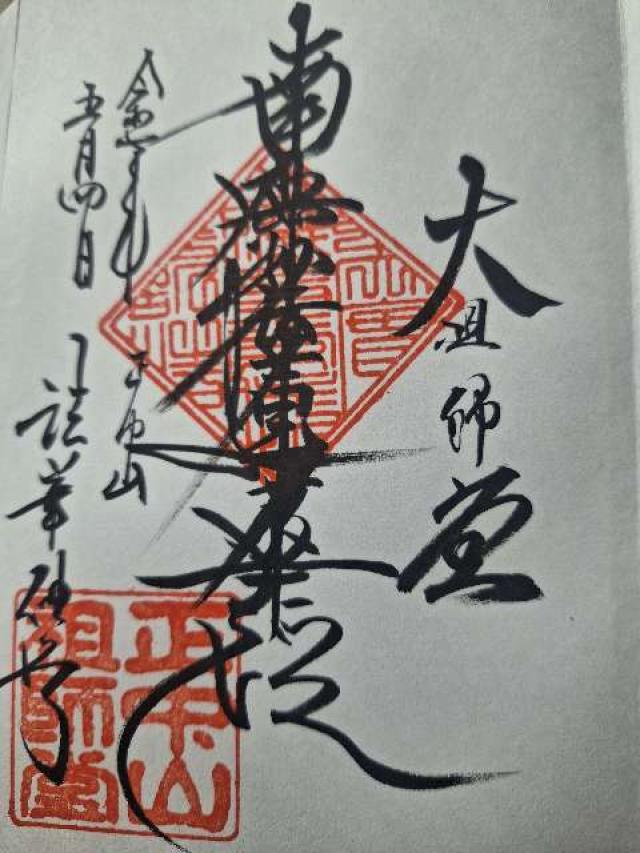 大祖師堂
南無妙法蓮華経
令和
五月四日
正中山
法華経寺
正中山
祖師堂